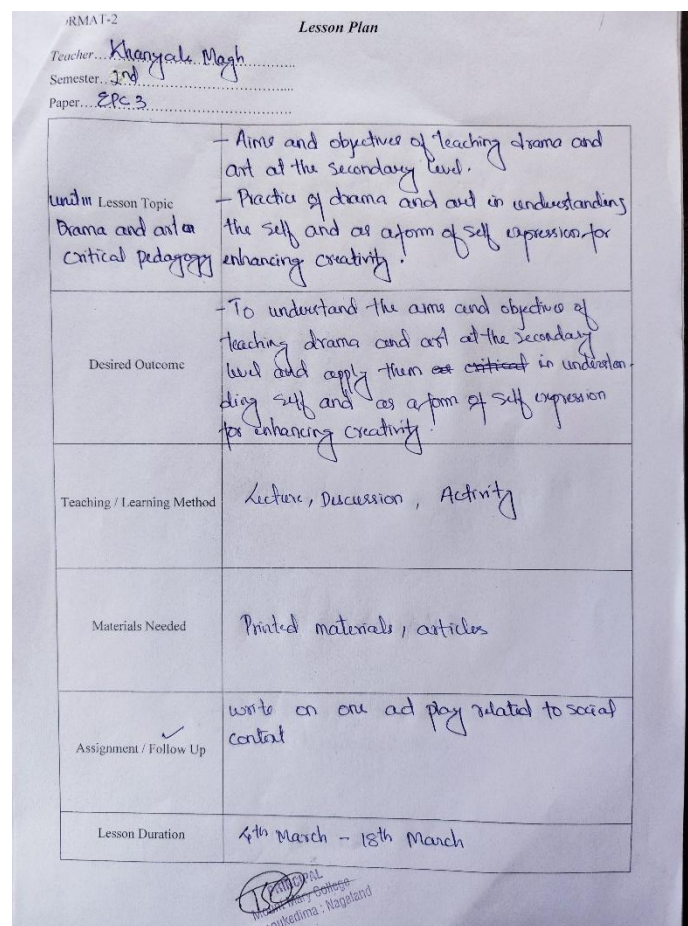 RMAT-2
Lesson Plan
Teacher... Khanyale Magh
Semester... 2nd
Paper... EPC 3
Unit III Lesson Topic
Drama and art as
critical pedagogy
- Aims and objectives of teaching drama and
art at the secondary level.
- Practice of drama and art in understanding
the self and as a form of self expression for
enhancing creativity.
Desired Outcome
- To understand the aims and objectives of
teaching drama and art at the secondary
level and apply them as critical in understan-
ding self and as a form of self expression
for enhancing creativity.
Teaching / Learning Method
Lecture, Discussion, Activity
Materials Needed
Printed materials, articles
Assignment / Follow Up
write on one act play related to social
context
Lesson Duration
4th March - 18th March
PRINCIPAL
Mount Mary College
oukedima : Nagaland